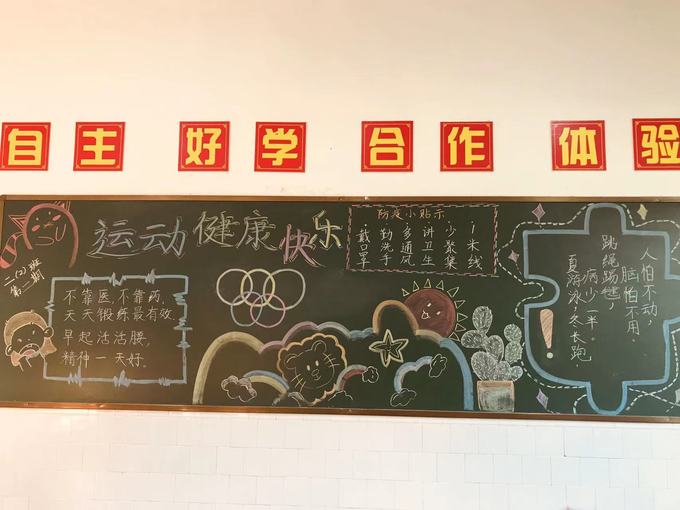 自主 好学 合作 体验
运动健康快乐
二(2)班
第二期
不靠医,不靠药,
天天锻炼最有效.
早起活活腰,
精伸一天好。
防疫小贴示
1米线
少聚集
讲卫生
多通风
勤洗手
戴口罩
人怕不动,
脑怕不用.
跳绳踢毽,
病少一半.
夏游泳,冬长跑.